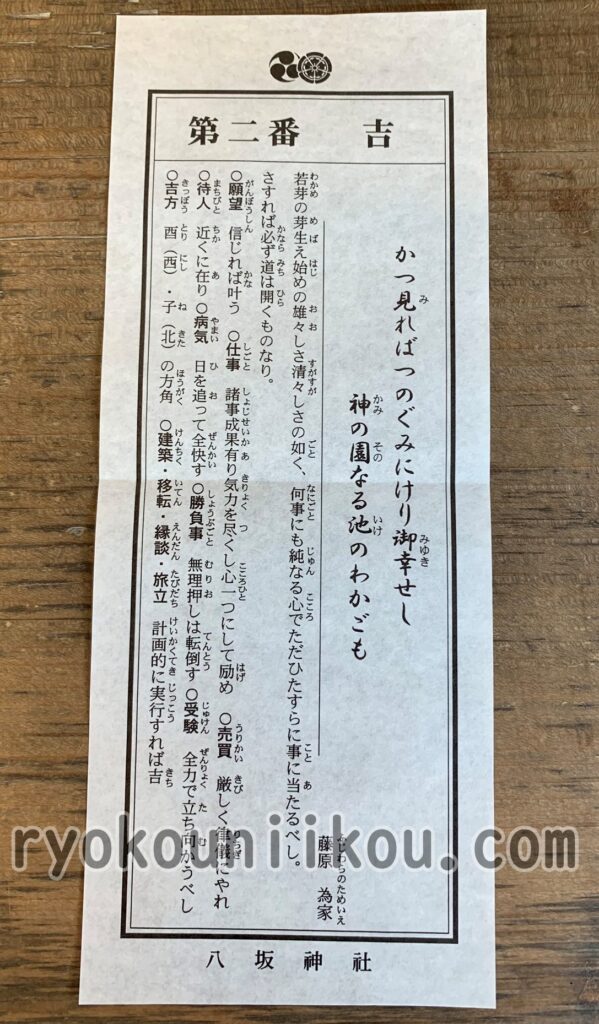 第二番 吉
かつ見ればつのぐみにけり御幸せし
神の園なる池のわかごも
藤原 為家
若芽の芽生え始めの雄々しさ清々しさの如く、何事にも純なる心でただひたすらに事に当たるべし。
さすれば必ず道は開くものなり。
○願望 信じれば叶う ○仕事 諸事成果有り気力を尽くし心一つにして励め ○売買 厳しく律儀にやれ
○待人 近くに在り ○病気 日を追って全快す ○勝負事 無理押しは転倒す ○受験 全力で立ち向かうべし
○吉方 酉(西)・子(北)の方角 ○建築・移転・縁談・旅立 計画的に実行すれば吉
八坂神社
ryokouniikou.com